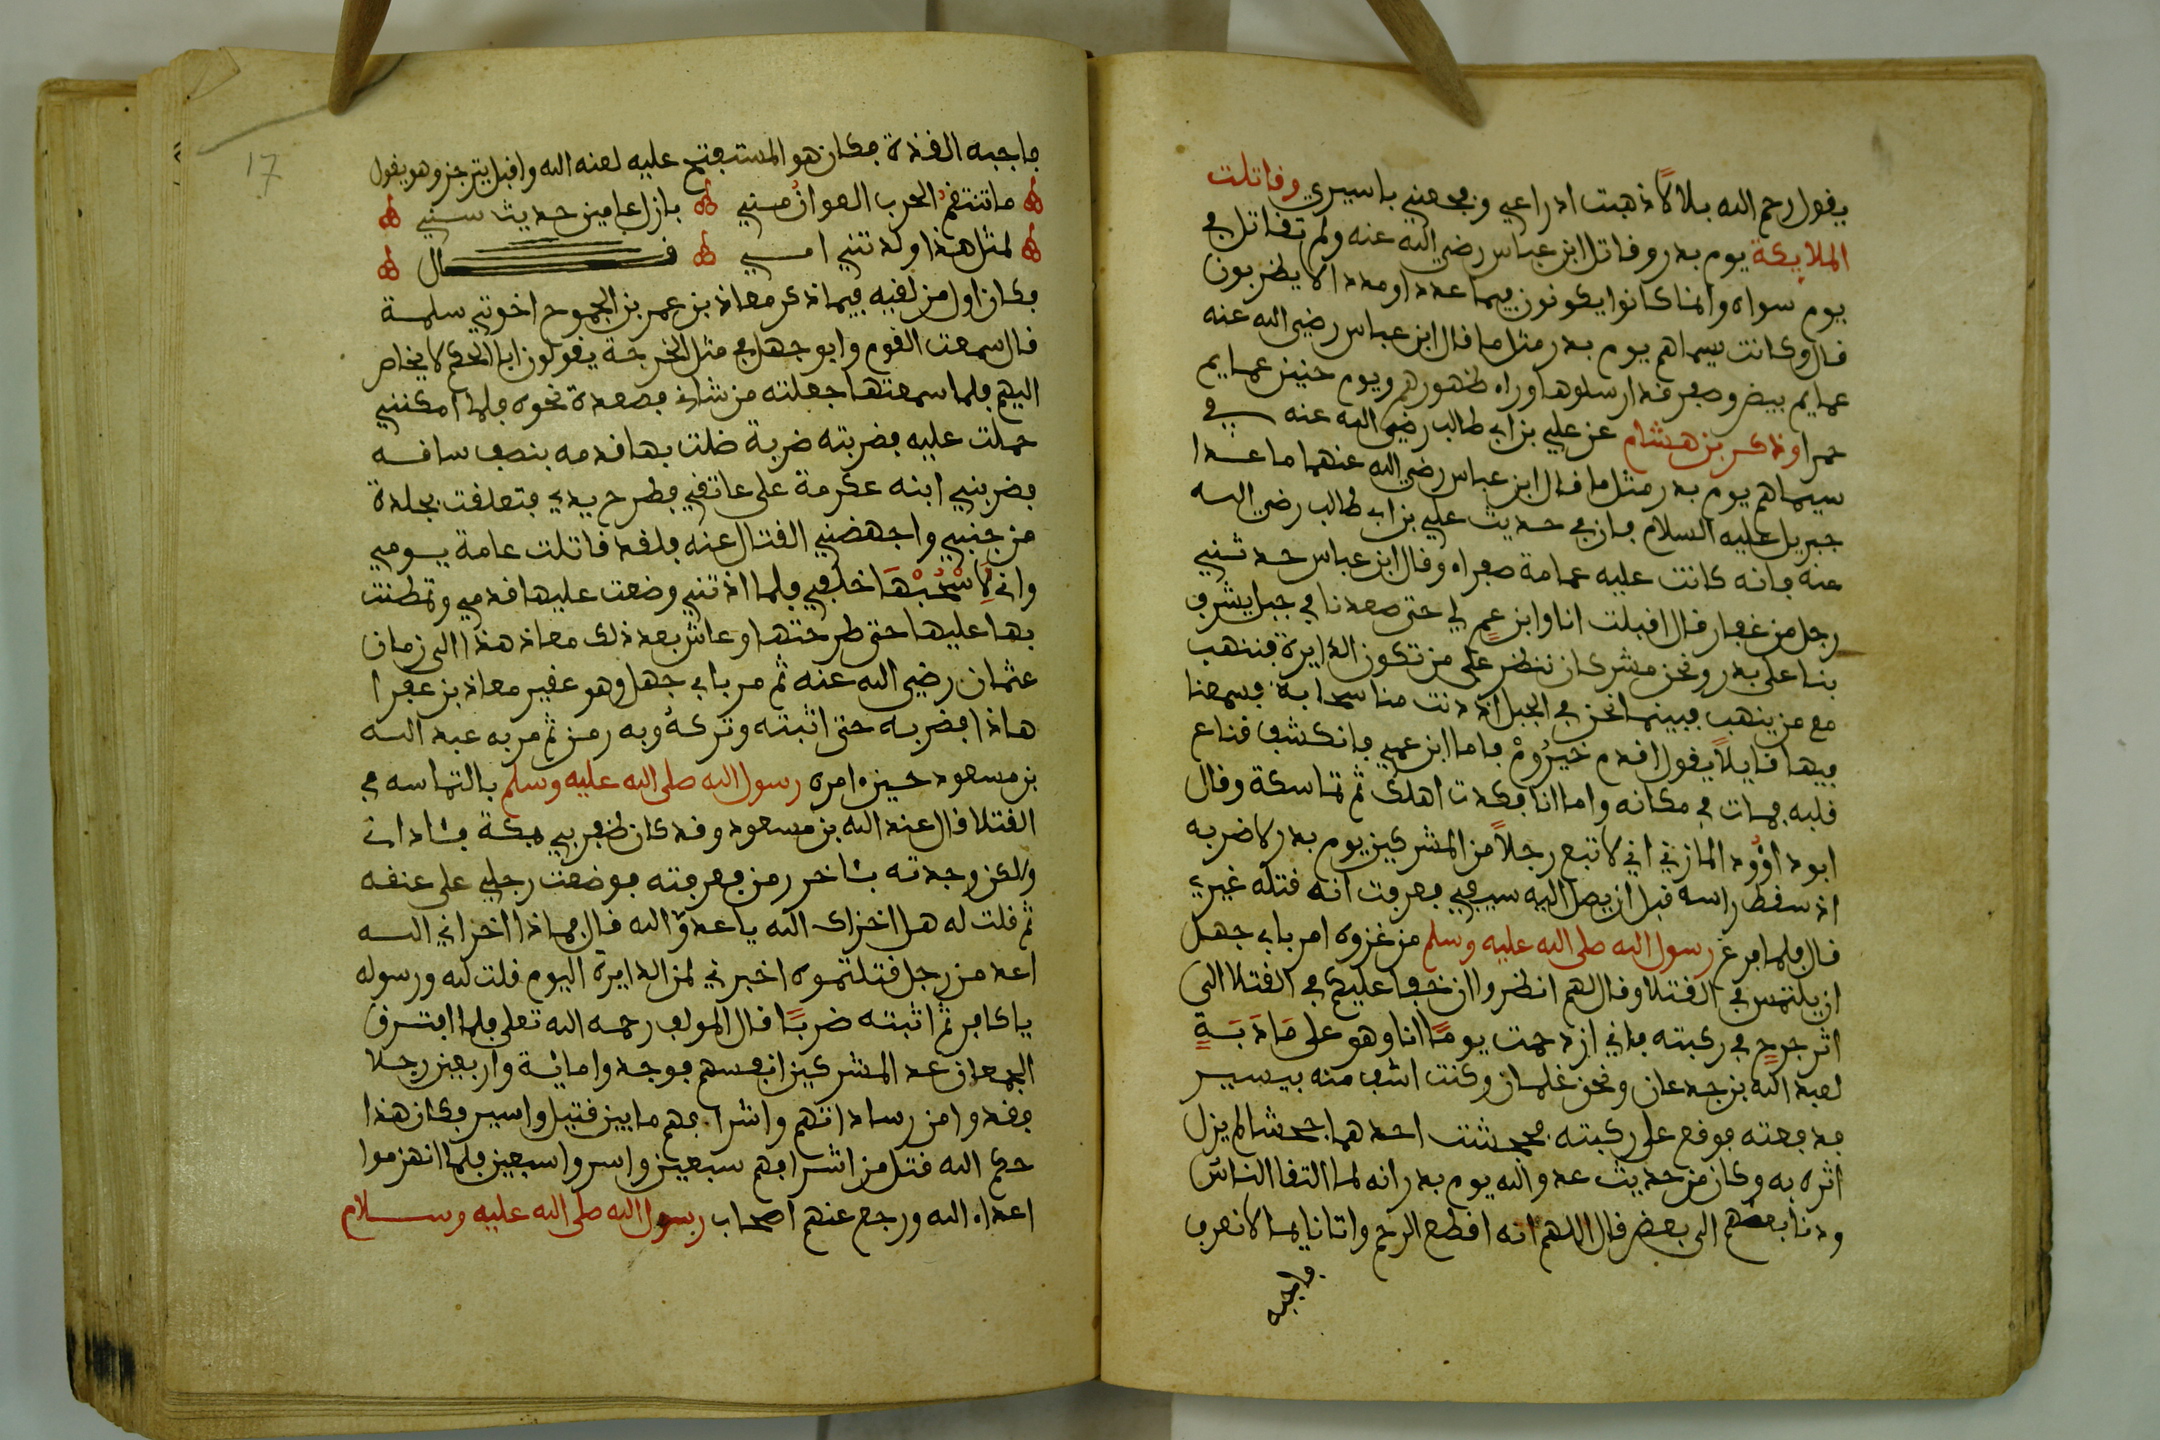 يقول رحم الله بلالاً ذهبت ادراعي وفجعني باسيري وقاتلت
الملايكة يوم بدر وقاتل ابن عباس رضي الله عنه ولم تقاتل في
يوم سواه وانما كانوا يكونون فيما عددا ومددا لا يضربون
قال وكانت سيماهم يوم بدر مثل ما قال ابن عباس رضي الله عنه
عمايم بيض وصفر قد ارسلوها وراه ظهورهم ويوم حنين عمايم
حمرا وذكر بن هشام عن علي بن ابي طالب رضي الله عنه في
سيماهم يوم بدر مثل ما قال ابن عباس رضي الله عنهما ما عدا
جبريل عليه السلام فان في حديث علي بن ابي طالب رضي الله
عنه فانه كانت عليه عمامة صفراه وقال ابن عباس حدثني
رجل من غفار قال اقبلت انا وابن عمٍ لي حتى صعدنا في جبل يشرف
بنا على بدر ونحن مشركان ننظر على من تكون الدايرة فننهب
مع من ينهب فبينما نحن في الجبل اذ دنت منا سحابة فسمعنا
فيها قايلاً يقول اقدم حيزُومْ فاما ابن عمي فانكشف قناع
قلبه فمات في مكانه واما انا فكدت اهلك ثم تماسكة وقال
ابو داوُود المازني اني لاتبع رجلاً من المشركين يوم بدر لاضربه
اذ سقط راسه قبل ان يصل اليه سيفي فعرفت انه قتله غيري
قال فلما فرغ رسول الله صلى الله عليه وسلم من غزوه امر بابي جهل
ان يلتمس في القتلا وقال لهم انظروا ان خفا عليكم في القتلا الى
اثر جرحٍ في ركبته فاني ازدحمت يومًا انا وهو على مَادَبَةٍ
لعبد الله بن جدعان ونحن غلمان وكنت اشف منه بيسير
فدفعته فوقع على ركبته فجحشت احدهما جحشا لم يزل
اثره به وكان من حديث عدو الله يوم بدر انه لما التقا الناس
ودنا بعضهم الى بعض قال اللهم انه اقطع الرحم واتانا بما لا نعرف
فاجبه
17
فاجبه الغذة فكان هو المستفتح عليه لعنه الله واقبل يترجز وهو يقول
ما تنتقم الحرب العوان مني بازل عامين حديث سني
لمثل هذا ولدتني امي قال
فكان اول من لقيه فيما ذكر معاذ بن عمر بن الجموح اخو بني سلمة
قال سمعت القوم وابو جهل في مثل الخرجة يقولون ابا الحكم لا يخلص
اليهم فلما سمعتها جعلته من شاني فصعدة نحوه فلما امكنني
حملت عليه فضربته ضربة ظلت بها قدمه بنصف ساقه
فضربني ابنه عكرمة على عاتقي فطرح يدي فتعلقت بجلدة
من جنبي واجهضني القتال عنه فلقد قاتلت عامة يومي
واني لَاسْحَبْهَا خلفي فلما اذتني وضعت عليها قدمي وتمطنت
بها عليها حتى طرحتها وعاش بعد ذلك معاذ هذا الى زمان
عثمان رضي الله عنه ثم مر بابي جهل وهو عقير معاذ بن عفرا
هاذا فضربه حتى اثبته وتركهُ وبه رمق ثم مر به عبد الله
بن مسعود حين امره رسول الله صلى الله عليه وسلم بالتماسه في
القتلا قال عبد الله بن مسعود وقد كان ظفر بي مكة فئاداني
ولكن وجدته بئاخر رمق فعرفته فوضعت رجلي على عنقه
ثم قلت له هل اخزاك الله يا عدوّ الله قال فماذا اخزاني الله
اعد من رجل قتلتموه اخبرني لمن الدايرة اليوم قلت لله ورسوله
يا كافر ثم اثبته ضربًا قال المولف رحمه الله تعلى فلما افترق
الجمعان عد المشركين انفسهم فوجدوا مائة واربعين رجلا
فقدوا من رساداتهم واشرافهم ما بين قتيل واسير فكان هذا
حكم الله قتل من اشرافهم سبعين واسر واسبعين فلما انهزموا
اعداه الله ورجع عنهم اصحاب رسول الله صلى الله عليه وسلام